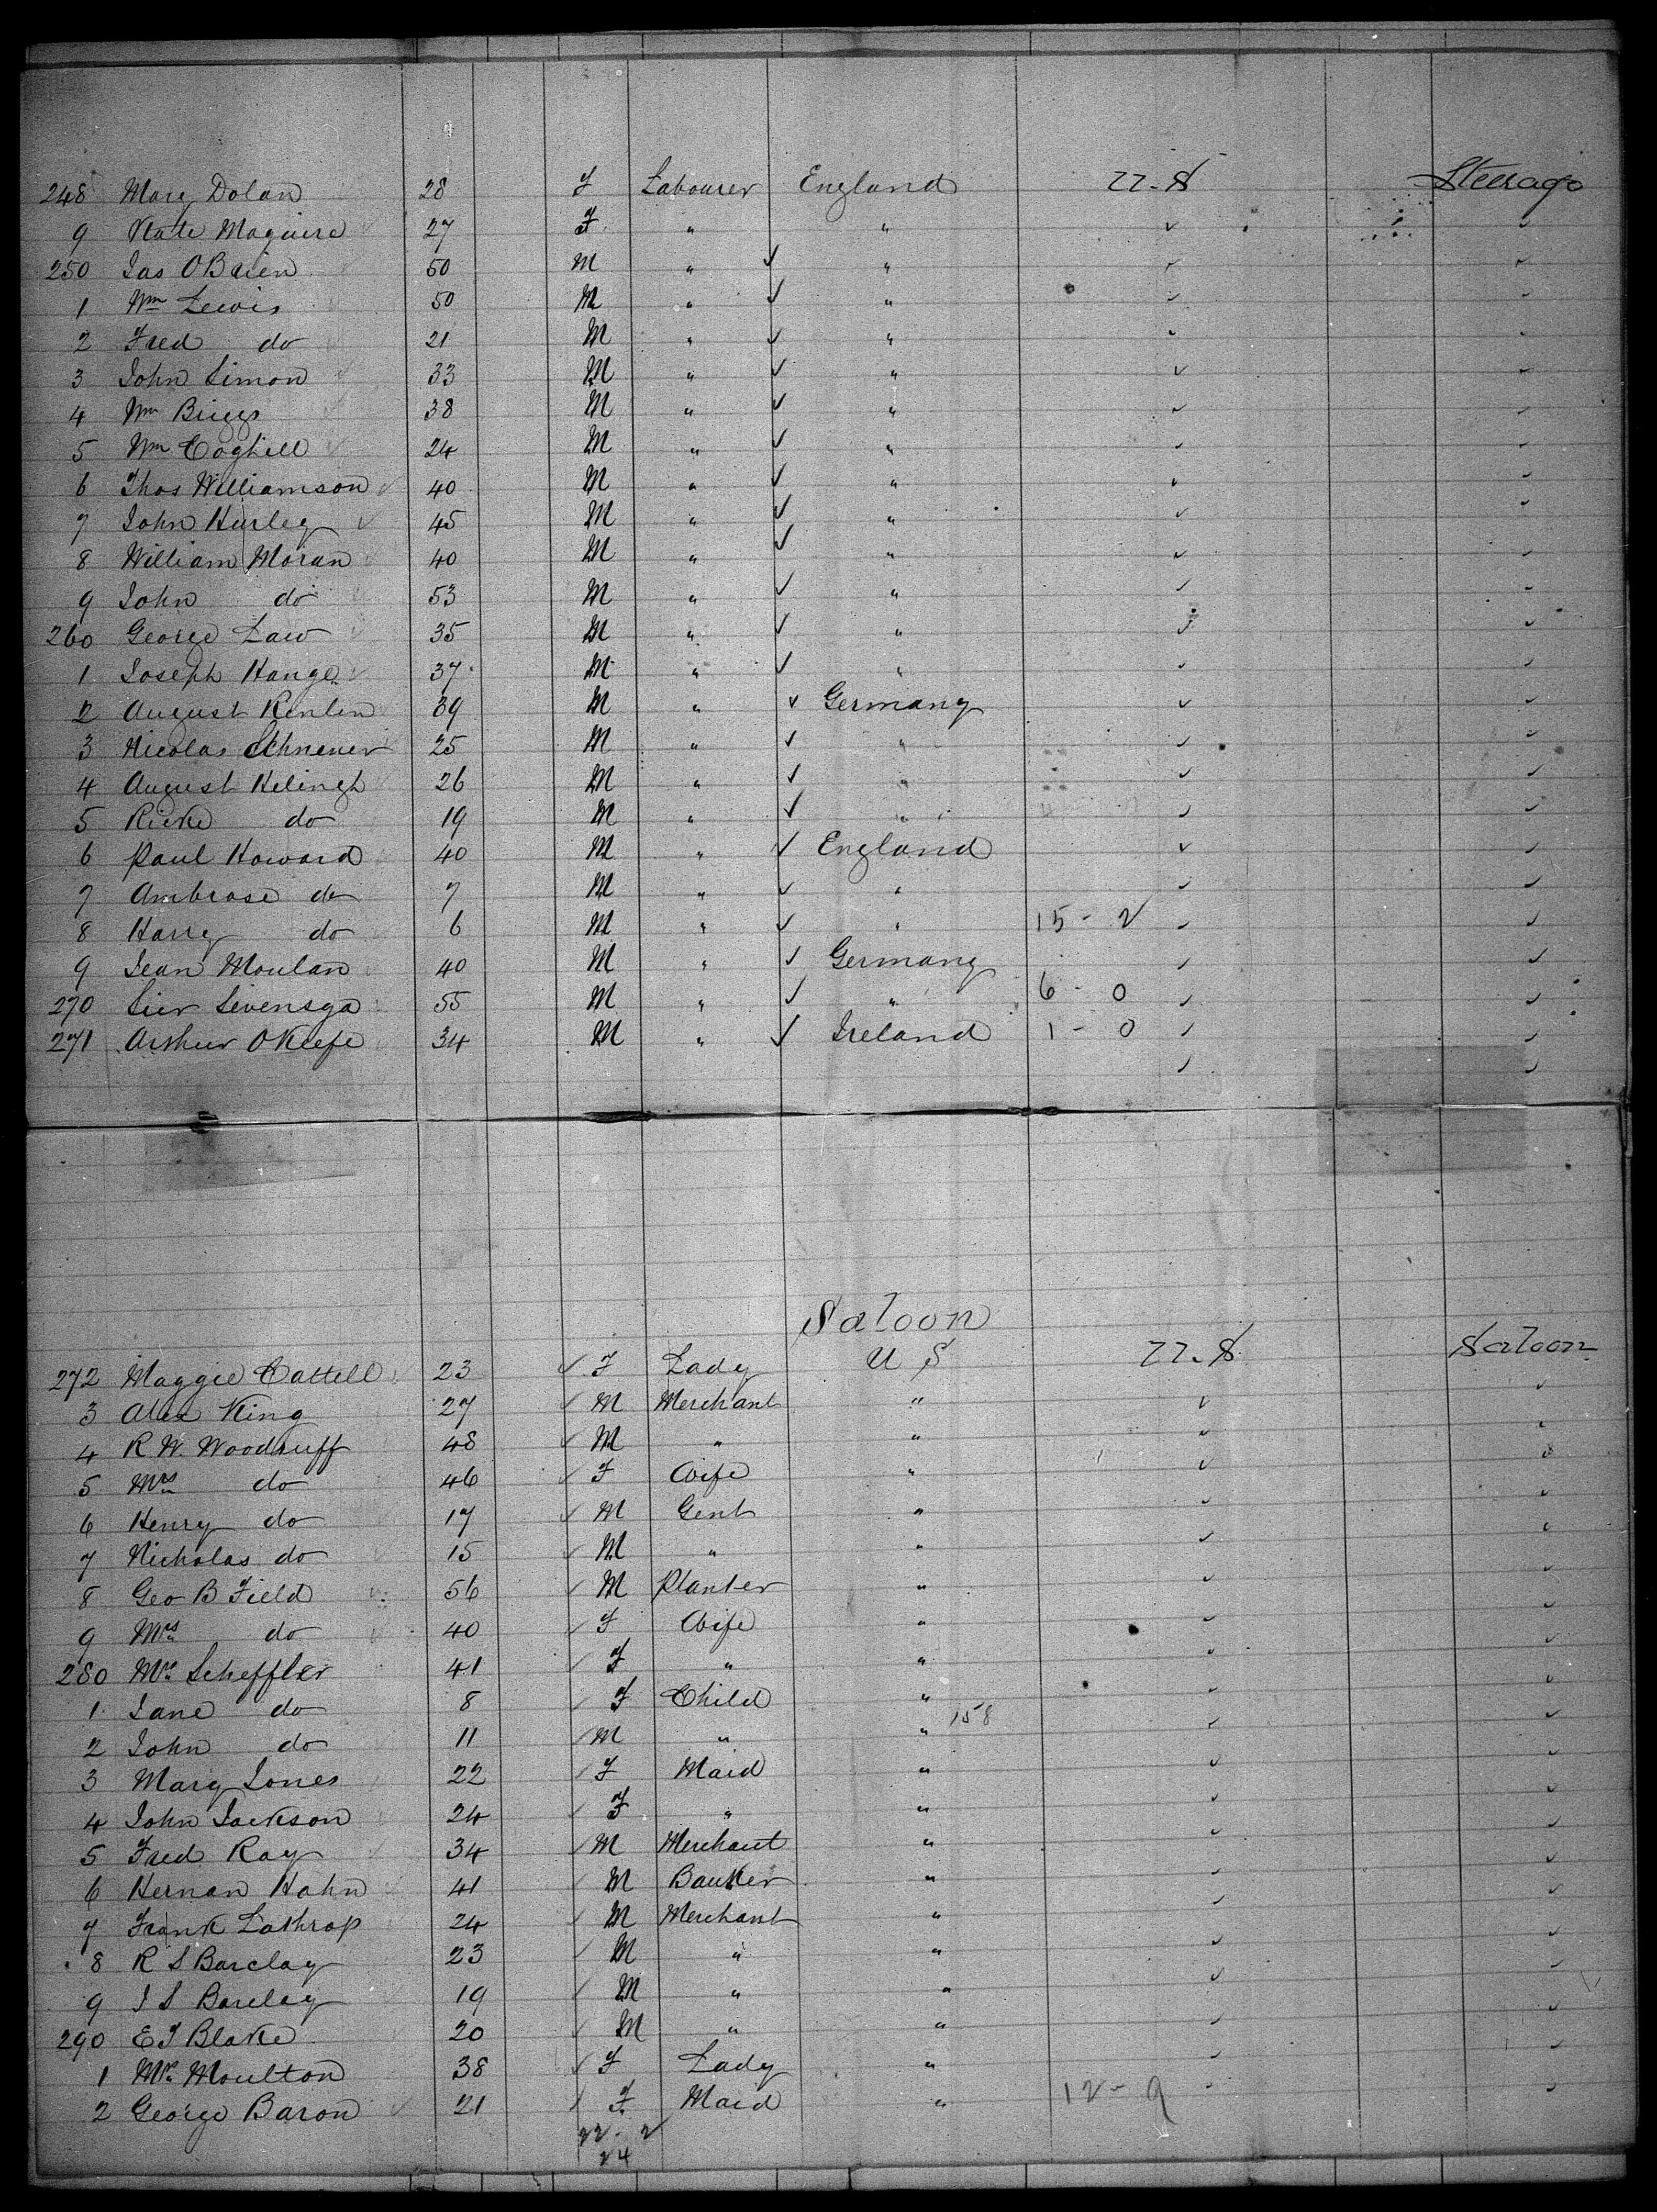 248 Mary Dolan 28 F Labourer England U.S Steerage
9 Kate Maguire 27 F " "
250 Jas OBrien 50 M " "
1 Wm Lewis 50 M " "
2 Fred do 21 M " "
3 John Simon 33 M " "
4 Wm Briggs 38 M " "
5 Wm Coghill 24 M " "
6 Thos Williamson 40 M " "
7 John Hurley 45 M " "
8 William Moran 40 M " "
9 John do 53 M " "
260 George Law 35 M " "
1 Joseph Hange 37 M " "
2 August Kenlen 39 M " Germany
3 Nicolas 25 M " "
4 August Helingh 26 M " "
5 Ricke do 19 M " "
6 Paul Howard 40 M " England
7 Ambrose do 7 M " "
8 Harry do 6 M " " 15 - 2
9 Jean Moulan 40 M " Germany
270 Sier Sevensga 55 M " " 6 - 0
271 Arthur OKeefe 34 M " Ireland 1 - 0
Saloon
272 Maggie Cattell 23 F Lady U S U.S Saloon
3 Alex King 27 M Merchant "
4 R W Woodruff 48 M " "
5 Mrs do 46 F Wife "
6 Henry do 17 M Gent "
7 Nicholas do 15 M " "
8 Geo B Field 56 M Planter "
9 Mrs do 40 F Wife "
280 Mrs Scheffler 41 F " "
1 Jane do 8 F Child " 158
2 John do 11 M " "
3 Mary Jones 22 F Maid "
4 John Jackson 24 F " "
5 Fred Ray 34 M Merchant "
6 Herman Hahn 41 M Banker "
7 Frank Lathrop 24 M Merchant "
8 R S Barclay 23 M " "
9 J S Barclay 19 M " "
290 E J Blake 20 M " "
1 Mrs Moulton 38 F Lady "
2 George Baron 21 F Maid " 12 - 9
22 - 2
24